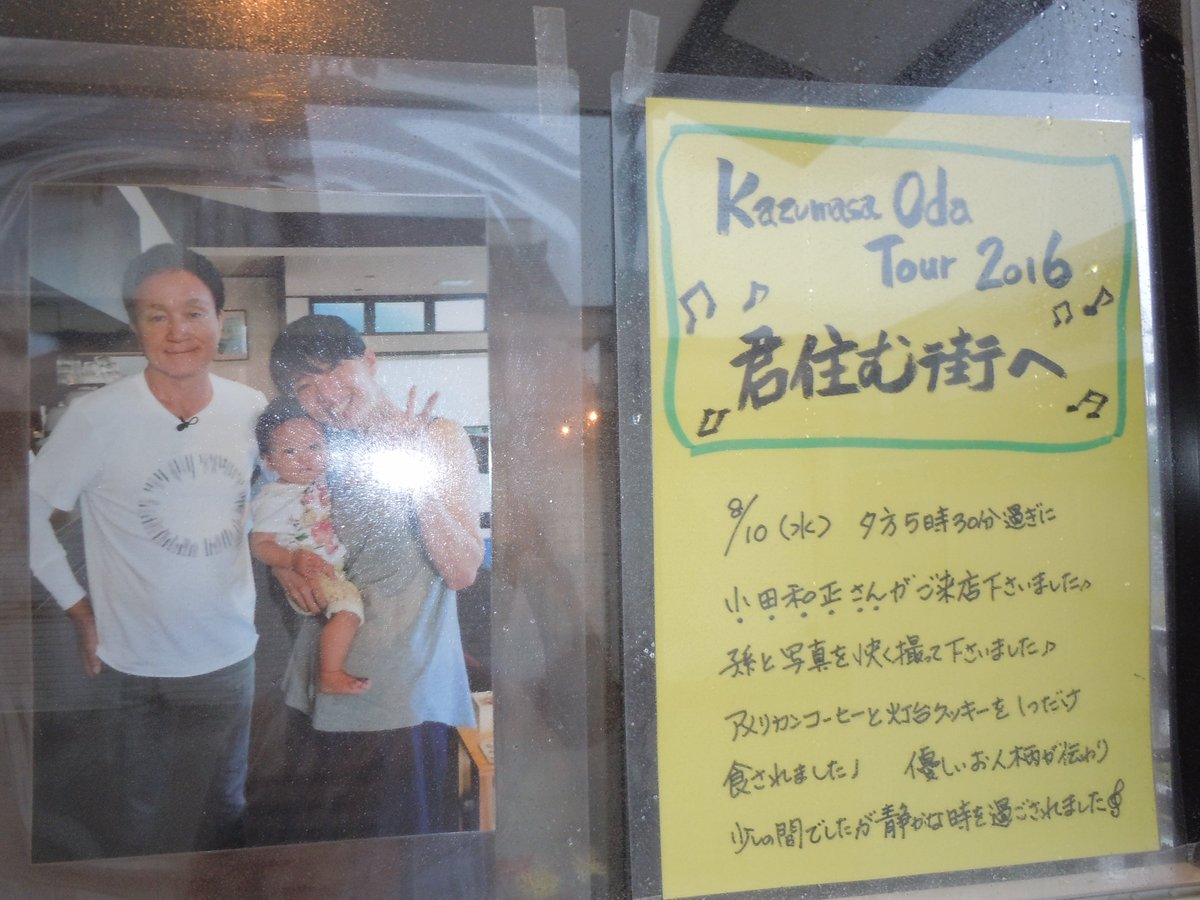 Kazumasa Oda
Tour 2016
君住む街へ
8/10(水) 夕方5時30分過ぎに
小田和正さんがご来店下さいました♪
孫と写真を快く撮って下さいました♪
アメリカンコーヒーと灯台クッキーを1つだけ
食されました♩ 優しいお人柄が伝わり
少しの間でしたが静かな時を過ごされました𝄞